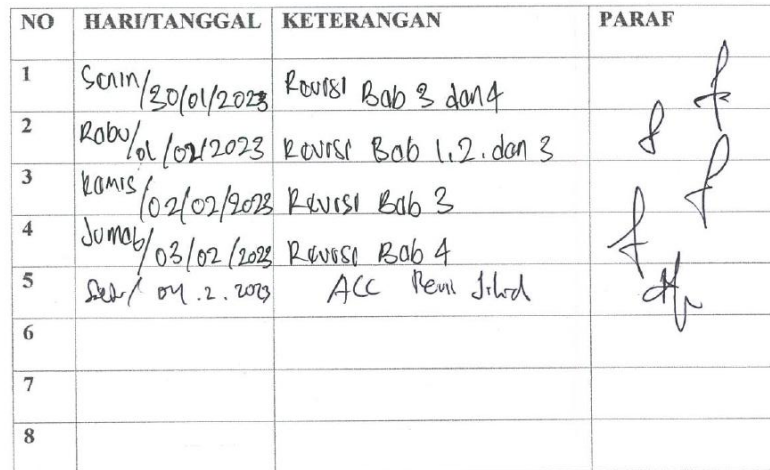 NO HARI/TANGGAL KETERANGAN PARAF
1 Senin/30/01/2023 Revisi Bab 3 dan 4
2 Rabu/01/02/2023 Revisi Bab 1, 2. dan 3
3 Kamis/02/02/2023 Revisi Bab 3
4 Jumat/03/02/2023 Revisi Bab 4
5 04.2.2023 ACC
6
7
8